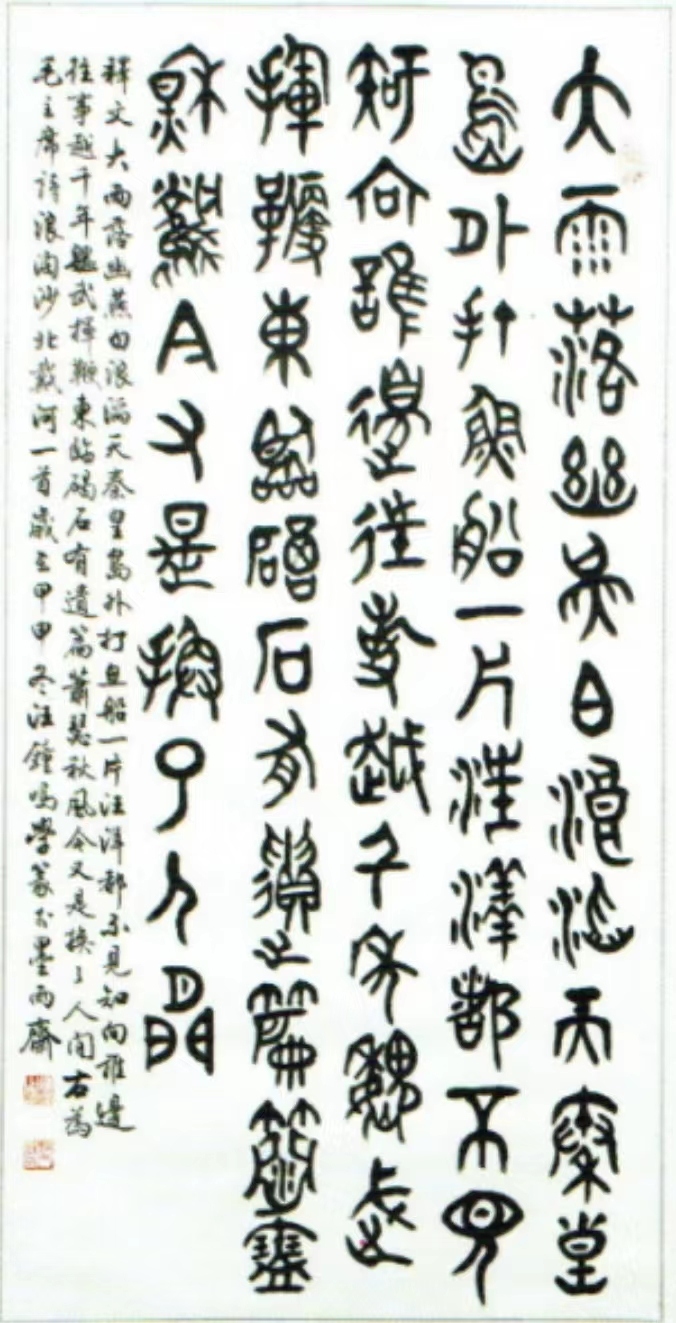 大雨落幽燕白浪滔天秦皇
島外打魚船一片汪洋都不見
知向誰邊往事越千年魏武
揮鞭東臨碣石有遺篇蕭瑟
秋風今又是換了人間
釋文大雨落幽燕白浪滔天秦皇島外打魚船一片汪洋都不見知向誰邊
往事越千年魏武揮鞭東臨碣石有遺篇蕭瑟秋風今又是換了人间右為
毛主席詩浪淘沙北戴河一首歲至甲申冬汪鐘鳴學篆於墨雨齋